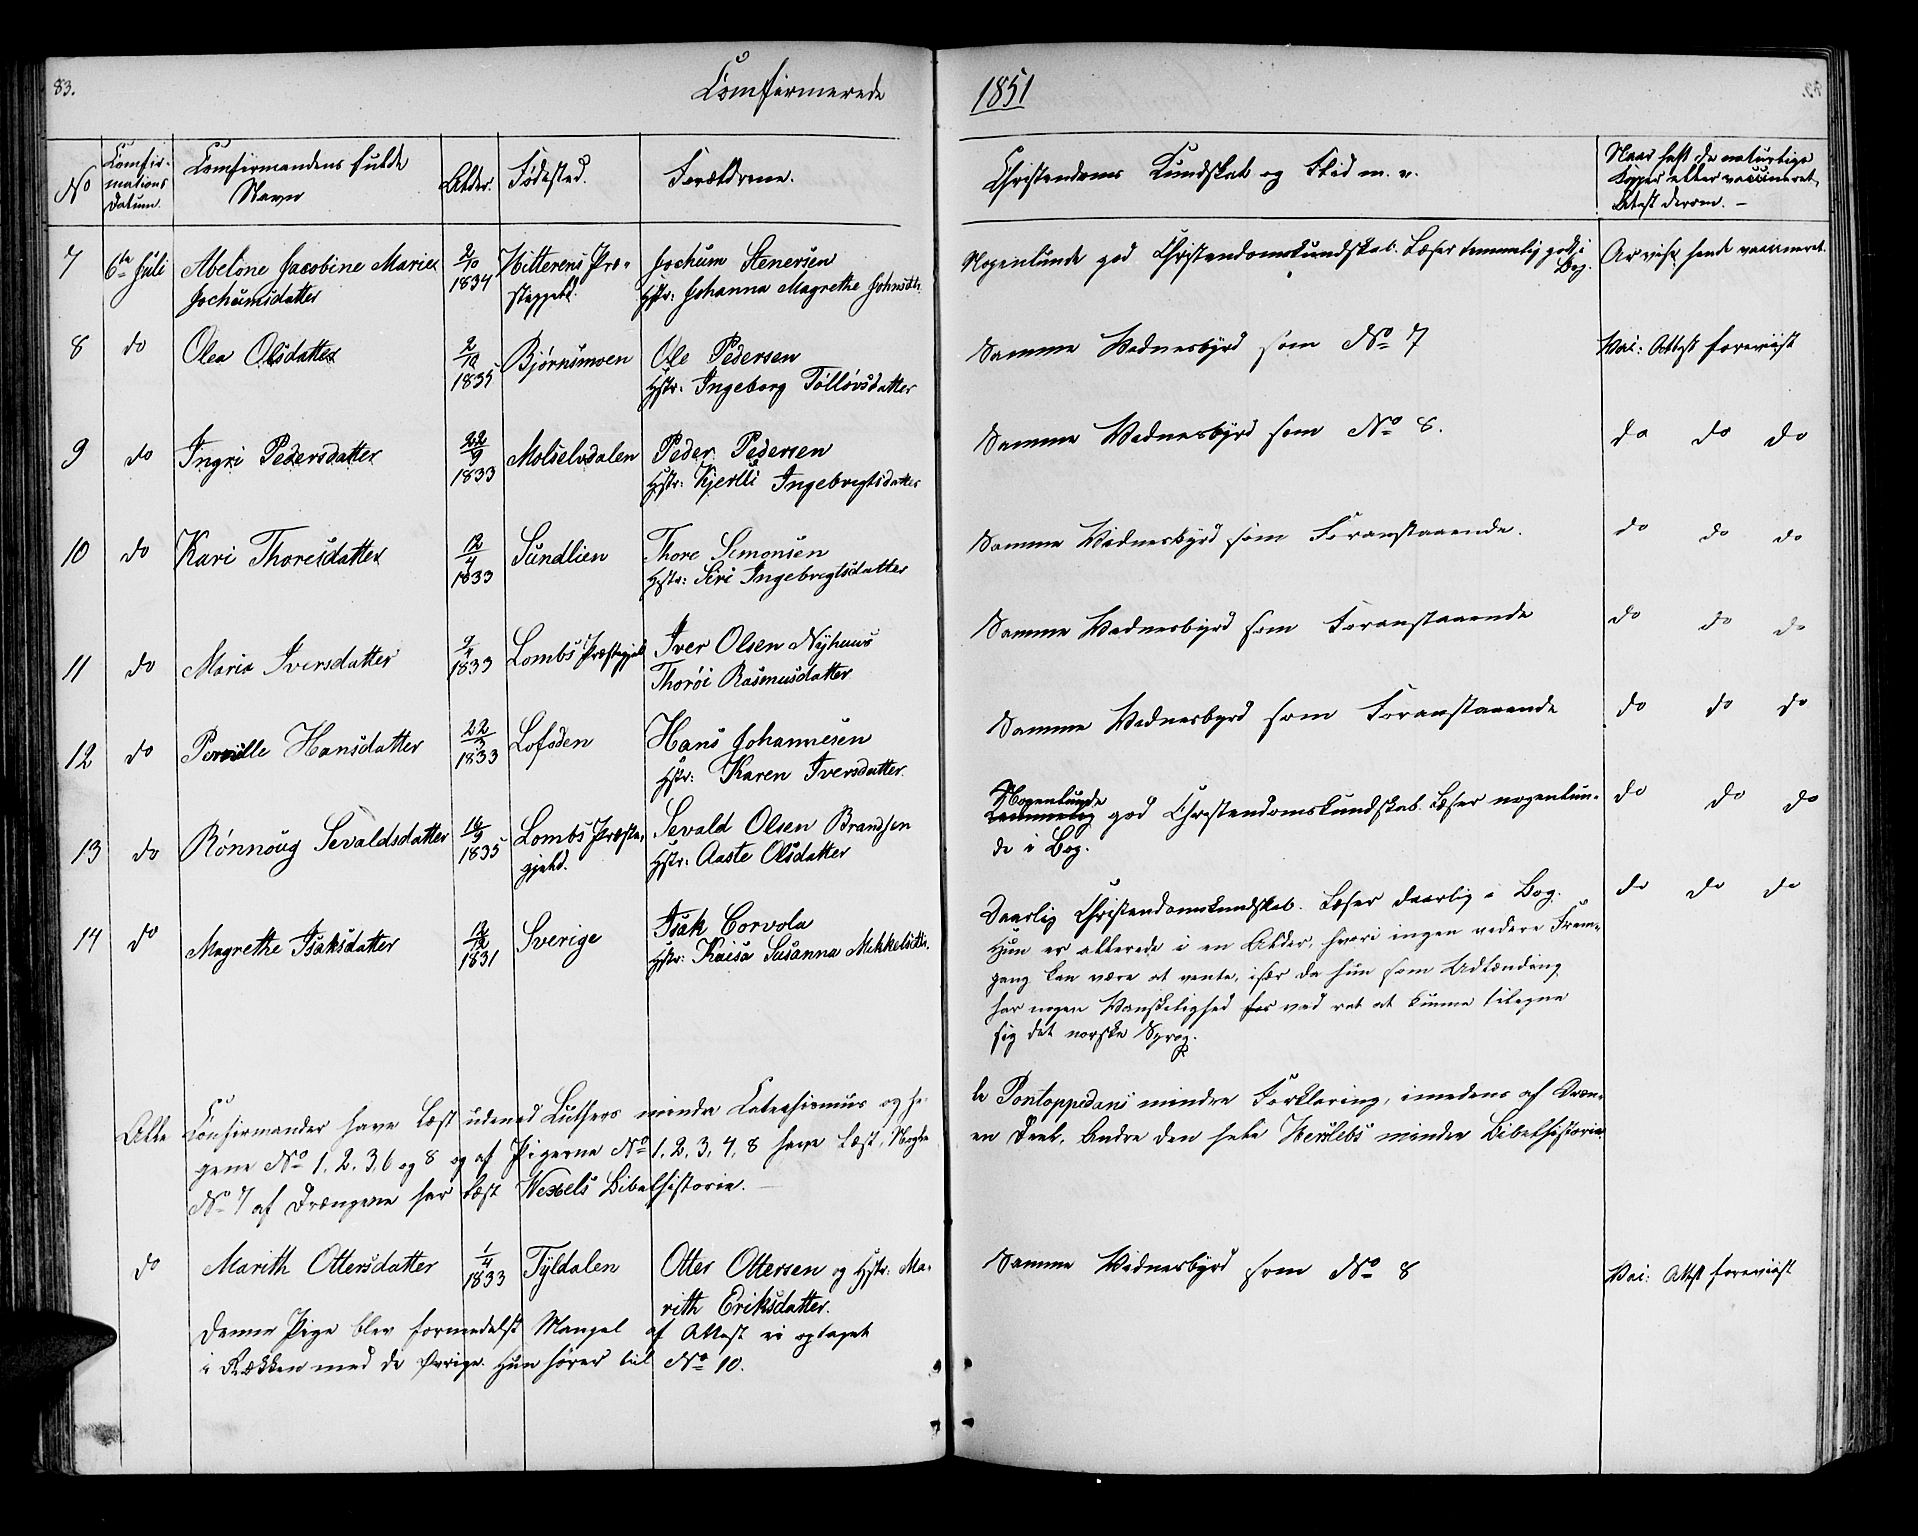 83.
Comfirmerede
1851
No
Comfir-
mations
Datum.
Comfirmandens fulde
Navn
Alder.
Fødested.
Forældrene.
Christendoms Kundskab og Flid m. v.
Naar haft de naturlige
Kopper eller vaccineret,
Attest derom. —
7 6te Juli Abelone Jacobine Marie 2/10 Hitterens Præ- Jochum Stenersen Nogenlunde god Christendomskundskab. Læser temmelig godt i Ar vist hende vaccineret.
Jochumsdatter 1834 stegjeld. Hstr: Johanna Magrethe Johnsdtr. Bog.
8 do Olea Olsdatter 2/10 1835 Bjørnsmoen Ole Pedersen Samme Vidnesbyrd som No 7 Vai: Attest foreviist
Hstr: Ingeborg Tølløvsdatter
9 do Ingri Pedersdatter 22/9 1833 Molselvdalen Peder Pedersen Samme Vidnesbyrd som No 8. do do do
Hstr: Kjerlli Ingebregtsdatter
10 do Kari Thoresdatter 12/4 1833 Sundlien Thore Simonsen Samme Vidnesbyrd som Foranstaaende. do do do
Hstr: Siri Ingebregtsdatter
11 do Maria Iversdatter 9/4 1833 Lombs Præstegjeld Iver Olsen Nyhuus Samme Vidnesbyrd som Foranstaaende do do do
Thorøi Rasmusdatter
12 do Pernille Hansdatter 22/3 1833 Lofoden Hans Johannesen Samme Vidnesbyrd som Foranstaaende do do do
Hstr: Karen Iversdatter.
13 do Rønnoug Sevaldsdatter 16/9 1835 Lombs Præste- Sevald Olsen Brandsen Nogenlunde
gjeld. Hstr: Aaste Olsdatter Temmelig god Christendomskundskab. Læser nogenlun- do do do
de i Bog.
14 do Magrethe Isaksdatter 12/12 1831 Sverige Isak Corvola Daarlig Christendomskundskab. Læser daarlig i Bog. do do do
Hstr: Kaisa Susanna Mikkelsdtr. Hun er allerede i en Alder, hvori ingen videre Frem-
gang kan være at vente, især da hun som Udlænding
har nogen Vanskelighed for ved ret at kunne tilegne
sig det norske Sprog.
Alle Confirmander have læst udenad Luthers mindre Catechismus og he- le Pontoppedans mindre Forklaring, imedens af Dren-
gene No 1, 2, 3, 6 og 8 og af Pigerne No 1, 2, 3, 4, 8 have læst, Nogle en Deel, Andre den hele Herslebs mindre Bibelhistorie
No 7 af Drengene har læst Wexels Bibelhistorie. —
do Marith Ottersdatter 1/4 1833 Tyldalen Otter Ottersen og Hstr: Ma- Samme Vidnesbyrd som No 8 Vai: Attest foreviist
rith Eriksdatter.
Denne Pige blev formedelst Mangel af Attest ei optaget
i Rækken med de Øvrige. Hun hører til No 10.